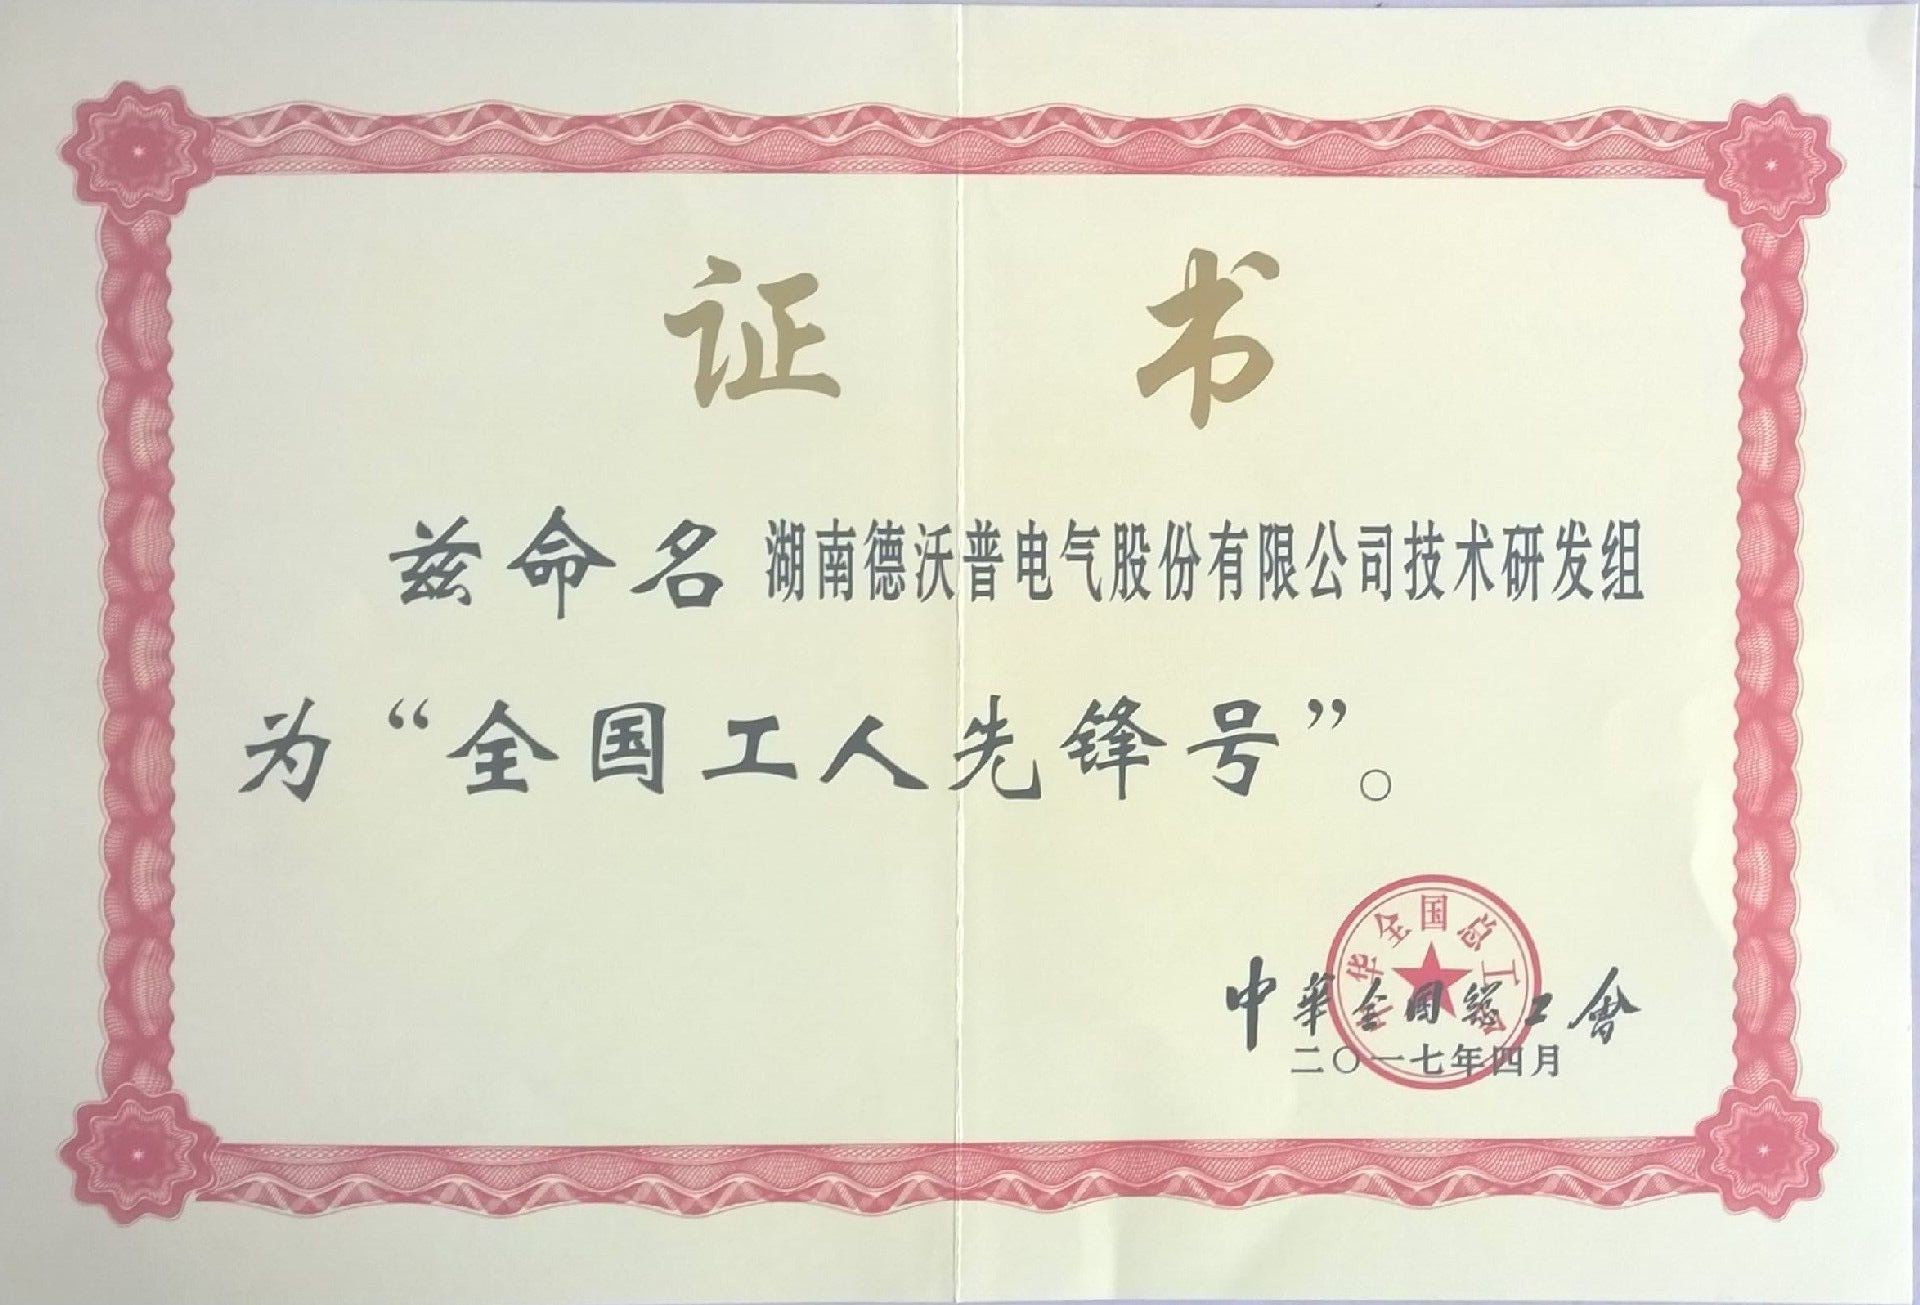 证书
兹命名 湖南德沃普电气股份有限公司技术研发组
为“全国工人先锋号”。
中华全国总工会
中華全國總工會
二〇一七年四月